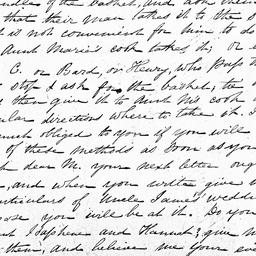 of the basket, and ask them
that their man takes it to the s
it is not convenient for him to do
Aunt Maria's cook takes it; or e
C. or Bard, or Henry, who pass th
stop & ask for the basket; the
then give it to Aunt M's cook
ular directions where to take it. I
much obliged to you if you will
of these methods as soon as you
dear M. your next letter oug
, and when you write give
particulars of Uncle James' weddin
you will be at it. Do you
Josephene and Hannah; give m
them, and believe me your ev